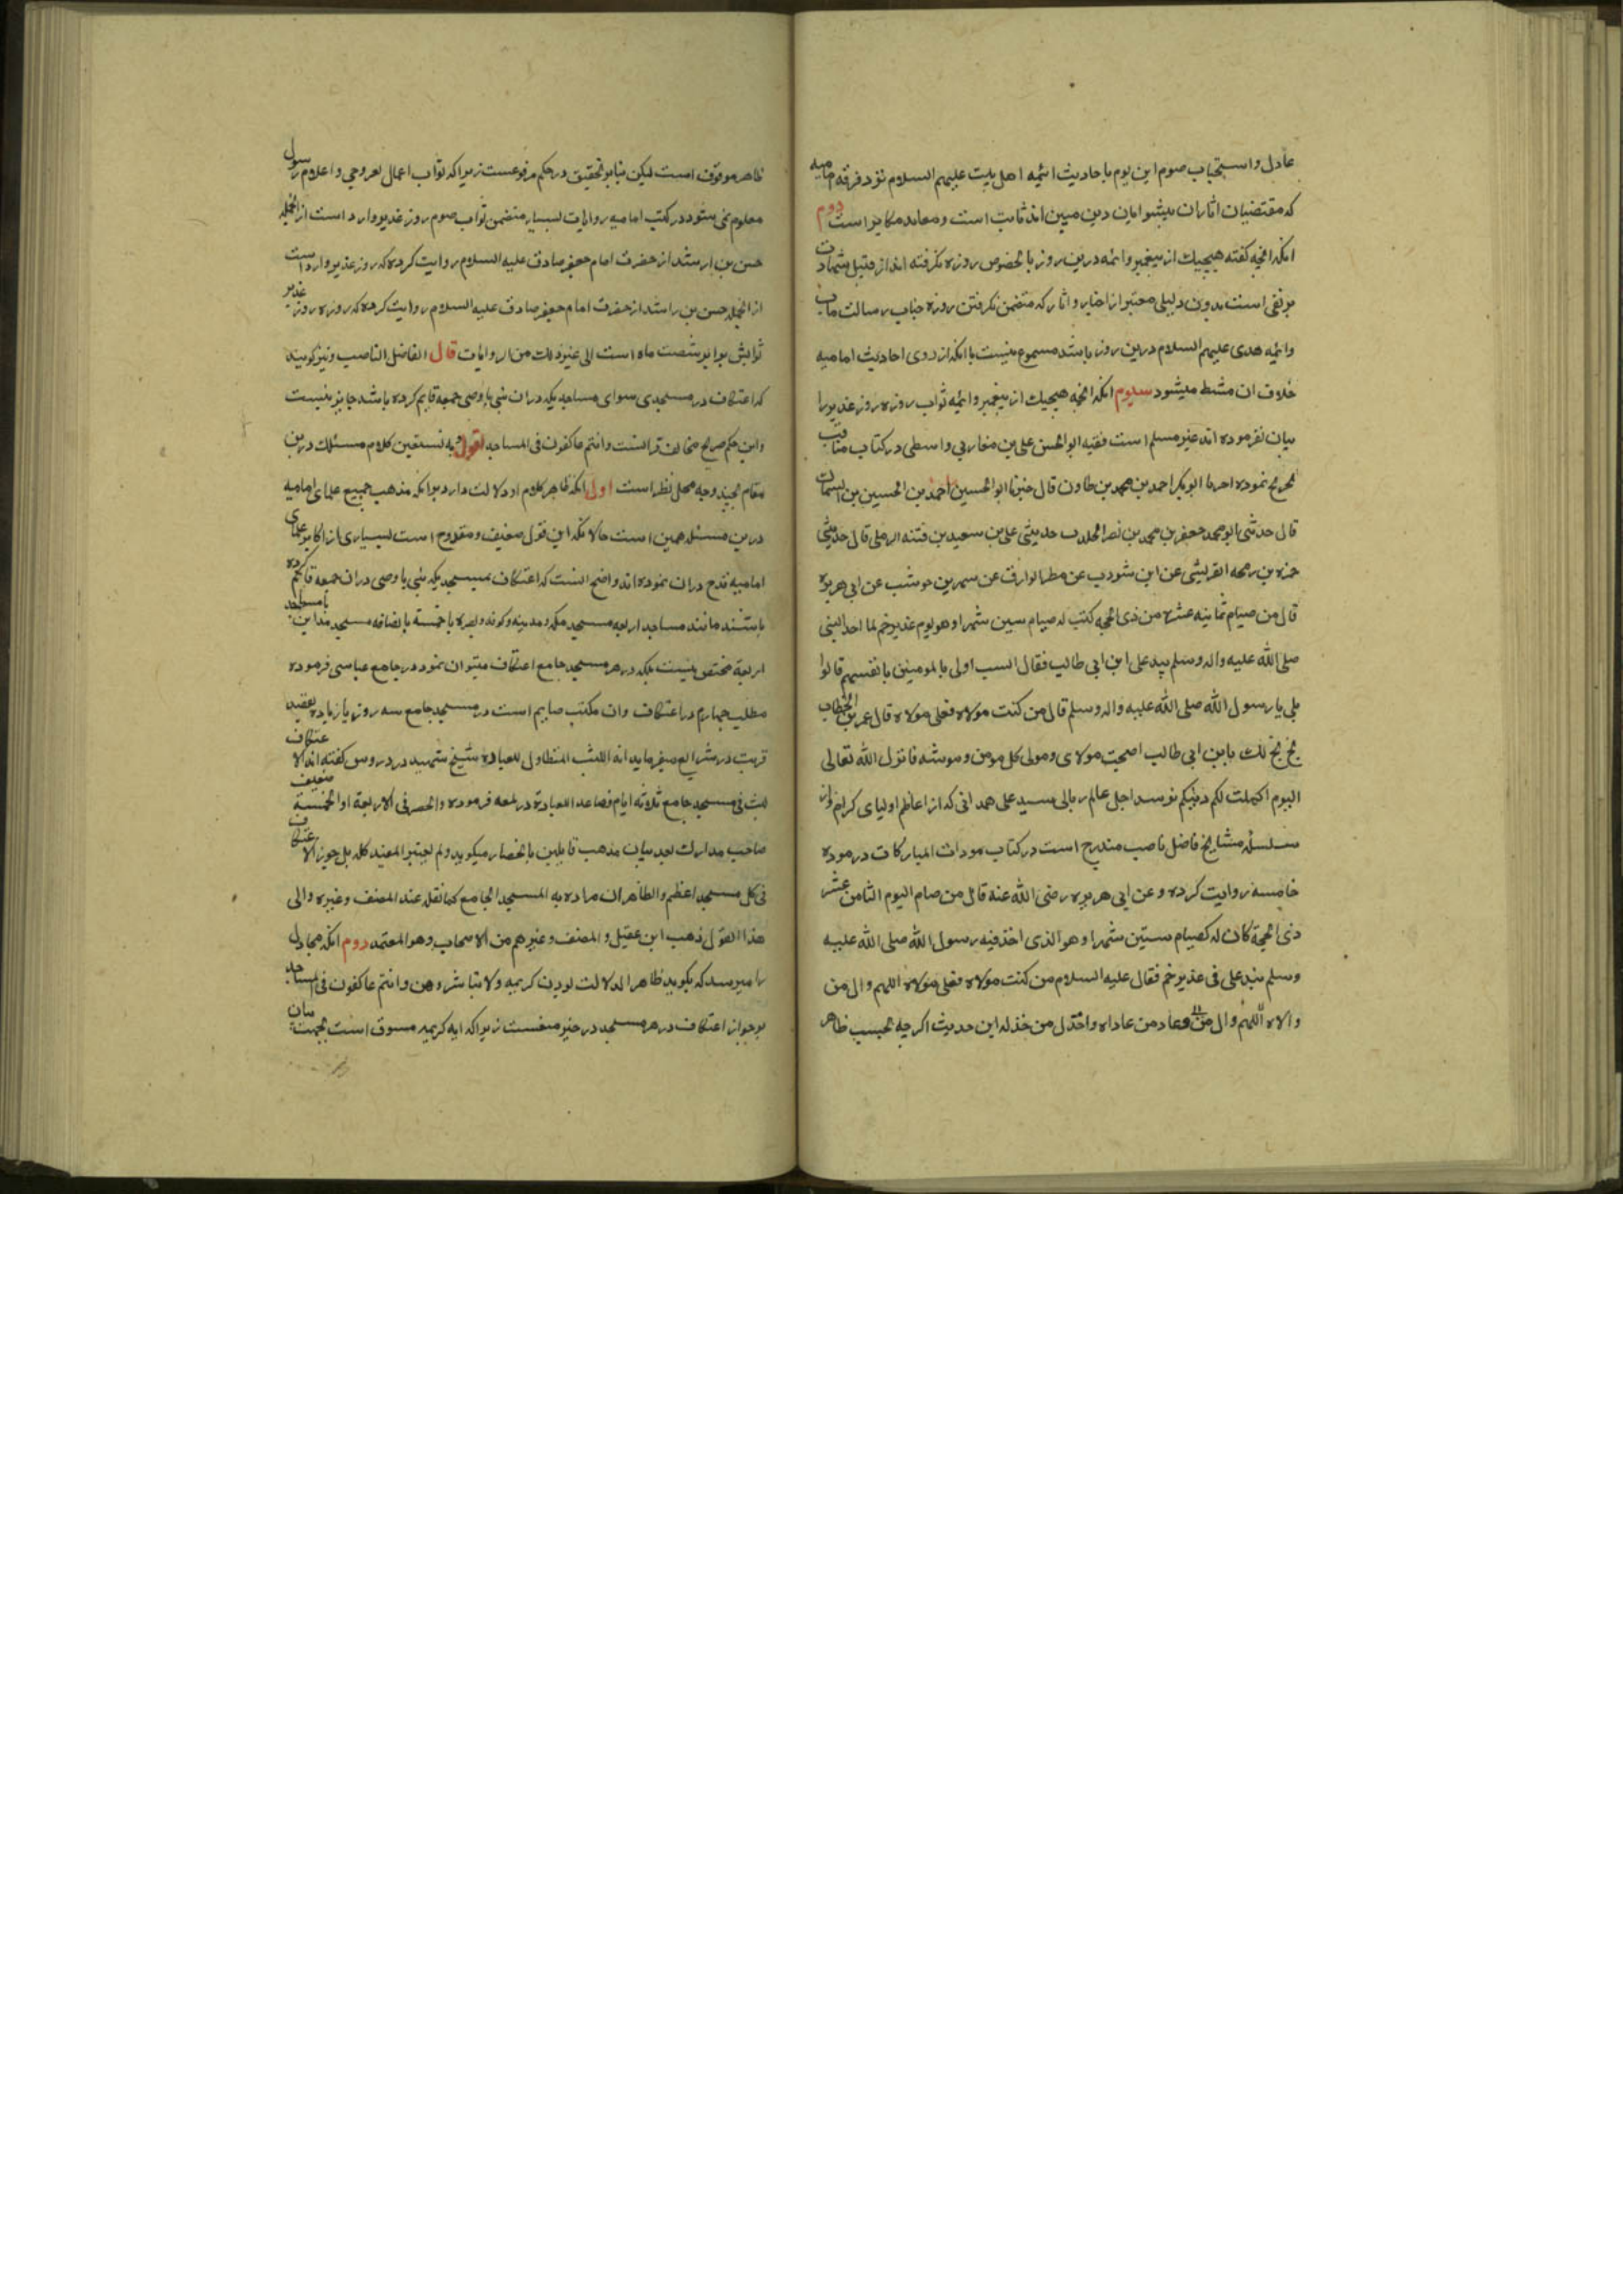 عادل و استحباب صوم این یوم باحادیث ائمه اهل بیت علیهم السلام نزد فرقه امامیه
که مقتضیان اثاران پیشوایان دین مبین اند ثابت است و معاند مکابر است دوم
انکه انچه کفته هیچیک از پیغمبر و ائمه درین روز بالخصوص روزه نکرفته اند از قبیل شهادت
بر نفی است بدون دلیلی معتبر از اخبار و اثار که متضمن نکرفتن روزه جناب رسالت ماب
و ائمه هدی علیهم السلام درین روز باشد مسموع نیست با انکه از روی احادیث امامیه
خلاف ان مثبط میشود سیوم انکه انچه هیچیک از پیغمبر و ائمه ثواب روزه روز غدیر را
بیان نفرموده اند غیر مسلم است فقیه ابو الحسن علی بن مغازلی واسطی در کتاب مناقب
تخریج نموده اخرنا ابو بکر احمد بن محمد بن طاون قال خبرنا ابو الحسین احمد بن الحسین بن السماک
قال حدثنی ابو محمد جعفر بن محمد بن نصر الخلدی حدیثنی علی بن سعید بن قتنه الرملی قال حدیثنی
حمزه بن رمحه القریشی عن ابن شودب عن مطر الوارق عن سهر بن حوشب عن ابی هریره
قال من صیام ثمانیه عشره من ذی الحجه کتب له صیام سین شهرا و هو یوم غدیر خم لما اخذ النبی
صلی الله علیه و اله و سلم بید علی ابن ابی طالب فقال الست اولی بالمومنین بانفسهم قالوا
بلی یا رسول الله صلی الله علیه و اله و سلم قال من کنت مولاه فعلی مولاه قال عمر بن الخطاب
بخ بخ لک یابن ابی طالب اصبحت مولای و مولی کل مومن و مومنه فانزل الله تعالی
الیوم اکملت لکم دینکم نو سد اجل عالم ربالی سید علی همدانی که از اعاظم اولیای کرام و از
سلسله مشایخ فاضل ناصب مندرج است در کتاب مودات المبارکات در موده
خامسه روایت کرده و عن ابی هریره رضی الله عنه قال من صام الیوم الثامن عشر
ذی الحجة کان له کصیام ستین شهرا و هو الذی اخذ فیه رسول الله صلی الله علیه
و سلم بید علی فی غدیر خم فقال علیه السلام من کنت مولاه فعلی مولاه اللهم وال من
والاه اللهم وال من و عاد من عاداه و اخذل من خذله این حدیث اکرچه بحسب ظاهر
ظاهر موقوف است لیکن بنابر تحقیق در حکم مرفوعست زیرا که ثواب اعمال بغیر وحی و اعلام رسول
معلوم نمی شود در کتب امامیه روایات بسیار متضمن ثواب صوم روز غدیر وارد است از انجمله
حسن بن ارشد از حضرت امام جعفر صادق علیه السلام روایت کرده که روز غدیر وارد است
از انجمله حسن بن راشد از حضرت امام جعفر صادق علیه السلام روایت کرده که روزه روز غدیر
ثوابش برابر شصت ماه است الی غیر ذلک من الروایات قال الفاضل الناصب و نیز کویند
که اعتکاف در مسجدی سوای مساجد یکه در ان نبی یا وصی جمعه قایم کرده باشد جایز نیست
و این حکم صریح مخالف قرانست و انتم عاکفون فی المساجد اقول و به نستعین کلام مسئلک درین
مقام بچند وجه محل نظر است اول انکه ظاهر کلام او دلالت دارد برانکه مذهب جمیع علمای امامیه
درین مسئله همین است حالانکه این قول ضعیف و مقدوح است بسیاری از اکابر علمای
امامیه قدح دران نموده اند و اصح انست که اعتکاف بمسجدیکه نبی یا وصی دران جمعه قایم کرده
باشند مانند مساجد اربعه مسجد مکه و مدینه و کوفه و بصره یا خمسة باضافه مسجد مداین یا مساجد
اربعة مختص نیست بلکه در هر مسجد جامع اعتکاف میتوان نمود در جامع عباسی فرموده
مطلب چهارم در اعتکاف و ان مکتب صایم است در مسجد جامع سه روز یا زیاده بقصد
قربت در شرایع میفرماید انه اللبث المتطاول للعبادة شیخ شهید در دروس کفته اند الاعتکاف
لبث فی مسجد جامع ثلاثة ایام فصاعدا للعبادة در لمعه فرموده و الحصر فی الاربعة او الخمسة ضعیف
صاحب مدارک بعد بیان مذهب قایلین بانحصار میکوید و لم یعتبر المفید کله بل جوز الاعتکاف
فی کل مسجد اعظم و الظاهر ان مراده به المسجد الجامع کما نقله عنه المصنف و غیره و الی
هذا القول ذهب ابن عقیل و المصنف و غیرهم من الاصحاب و هو المعتمد دوم انکه مجادل
را میرسد که بکوید ظاهرا لدلالت بودن کریمه و لا تباشروهن و انتم عاکفون فی المساجد
بر جواز اعتکاف در هر مسجد در حیز منعست زیرا که ایه کریمه مسوق است بجهت بیان